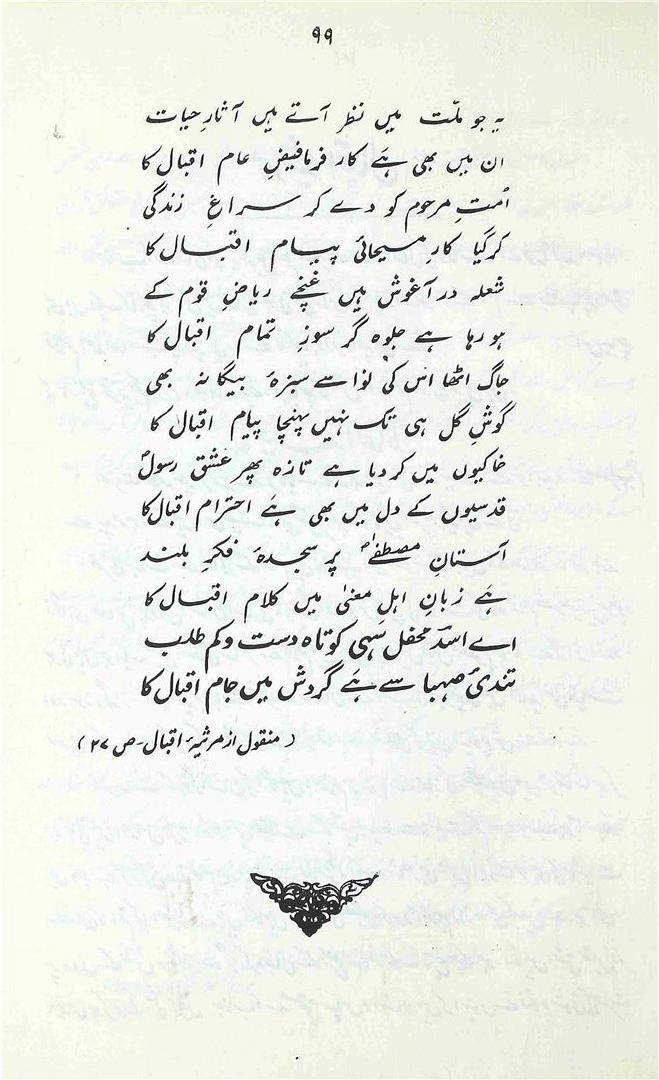 ۹۹
یہ جو ملّت میں نظر آتے ہیں آثارِ حیات
ان میں بھی ہے کار فرما فیضِ عام اقبال کا
اُمتِ مرحوم کو دے کر سراغِ زندگی
کر گیا کارِ مسیحائی پیام اقبال کا
شعلہ در آغوش ہیں غنچے ریاضِ قوم کے
ہو رہا ہے جلوہ گر سوزِ تمام اقبال کا
جاگ اٹھا اس کی نوا سے سبزۂ بیگانہ بھی
گوشِ گل ہی تک نہیں پہنچا پیام اقبال کا
خاکیوں میں کر دیا ہے تازہ پھر عشقِ رسولؐ
قدسیوں کے دل میں بھی ہے احترام اقبال کا
آستانِ مصطفےٰؐ پر سجدۂ فکرِ بلند
ہے زبانِ اہلِ معنیٰ میں کلام اقبال کا
اے اسدؔ محفل سہی کوتاہ دست و کم طلب
تندیٔ صہبا سے ہے گردش میں جام اقبال کا
( منقول از مرثیۂ اقبال۔ ص ۲۷ )